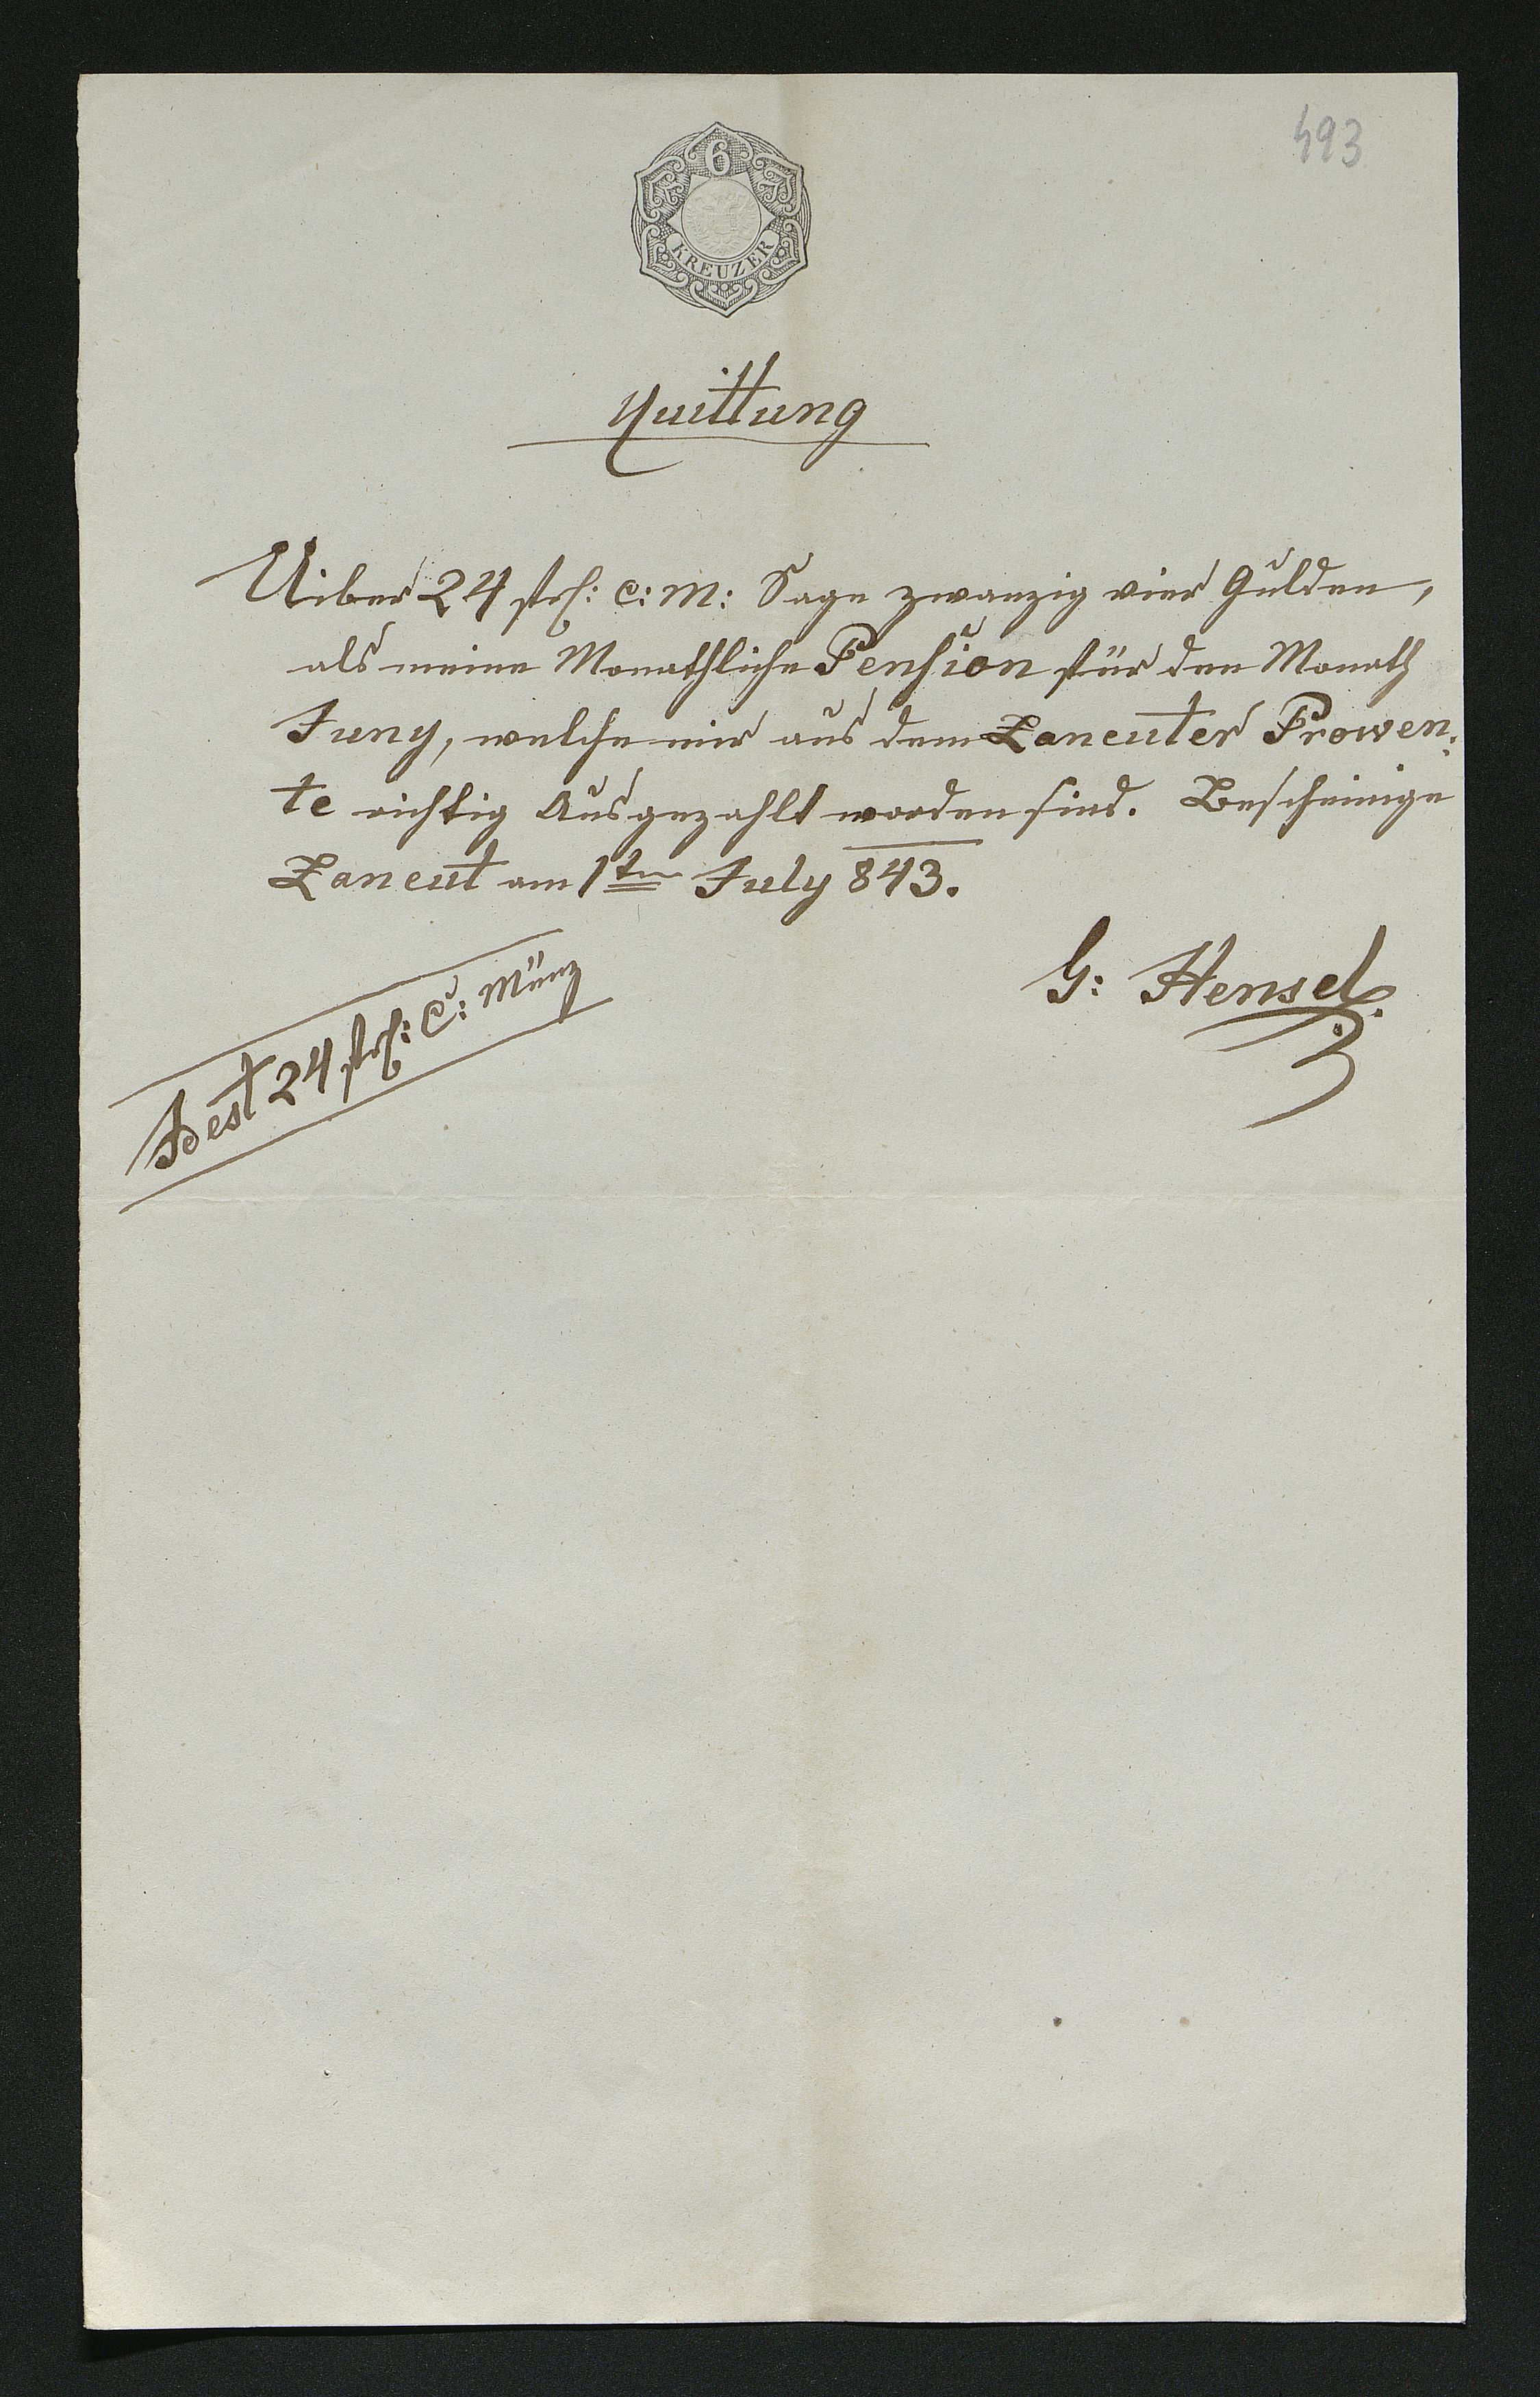 493
6
KREUZER
Quittung
Uiber 24 flrh: C: M: Sage zwanzig vier Gulden,
als meine Monathliche Pension für den Monath
Juny, welche mir aus dem Lancuter Prowen:
te richtig Ausgezahlt worden sind. Bescheinige
Lancut am 1ten July 843.
G: Hensel
Id est 24 flrh: C: Münz